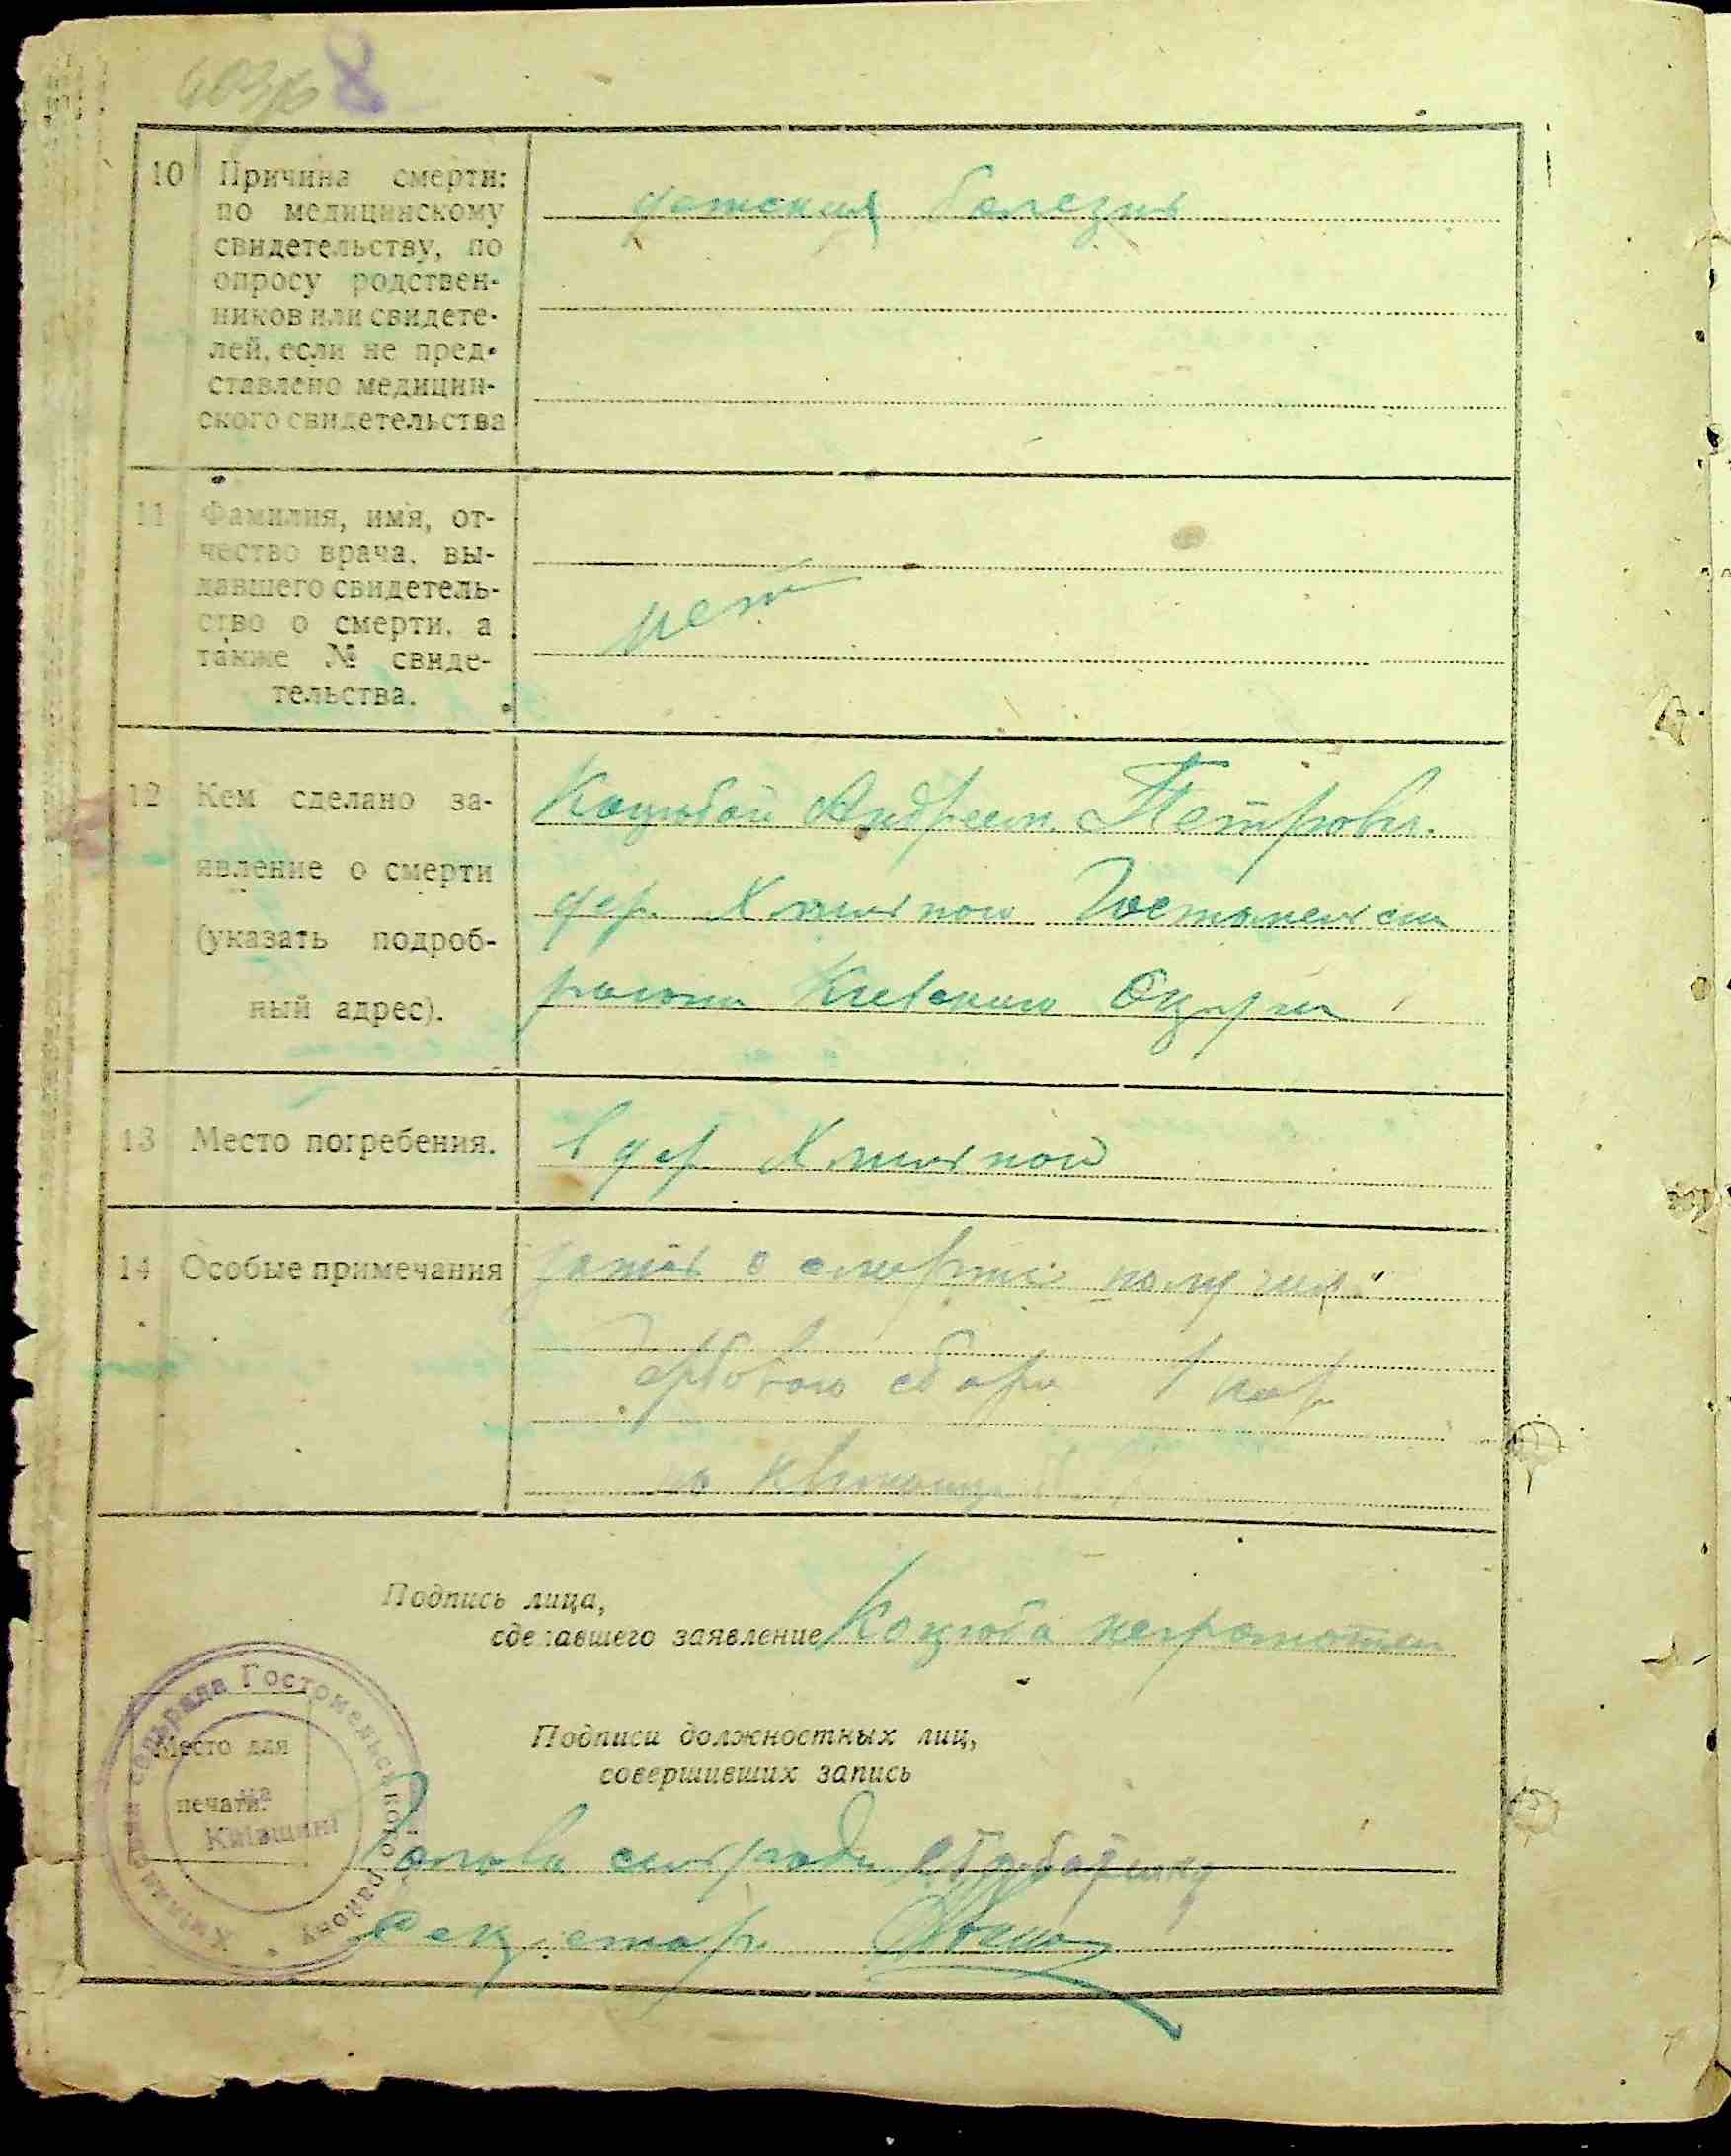 8
10 Причина смерти:
по медицинскому
свидетельству, по
опросу родствен-
ников или свидете-
лей, если не пред-
ставлено медицин-
ского свидетельства
детския болезнь
11 Фамилия, имя, от-
чество врача, вы-
давшего свидетель-
ство о смерти, а
также № свиде-
тельства.
нет
12 Кем сделано за-
явление о смерти
(указать подроб-
ный адрес).
Коцюбой Андреем Петрови.
дер. Гостомельск
района Киевского Округа
13 Место погребения.
в дер.
14 Особые примечания
о смерти получил
Гербового сбора 1 кар
по квитанц.
Подпись лица,
сделавшего заявление Коцюба неграмотен
Подписи должностных лиц,
совершивших запись
Место для
печати.
сельрада Гостомельського району
на
Київщині
Голова сельради
Секретар